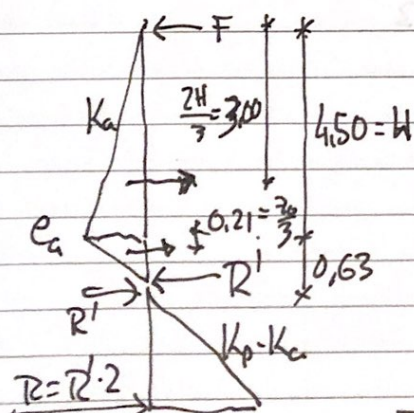 ← F
Ka
2H/3 = 3,00
4,50 = H
ea
0,21 = z₀/3
0,63
R'
R'
Kp-Ka
R = R'·2